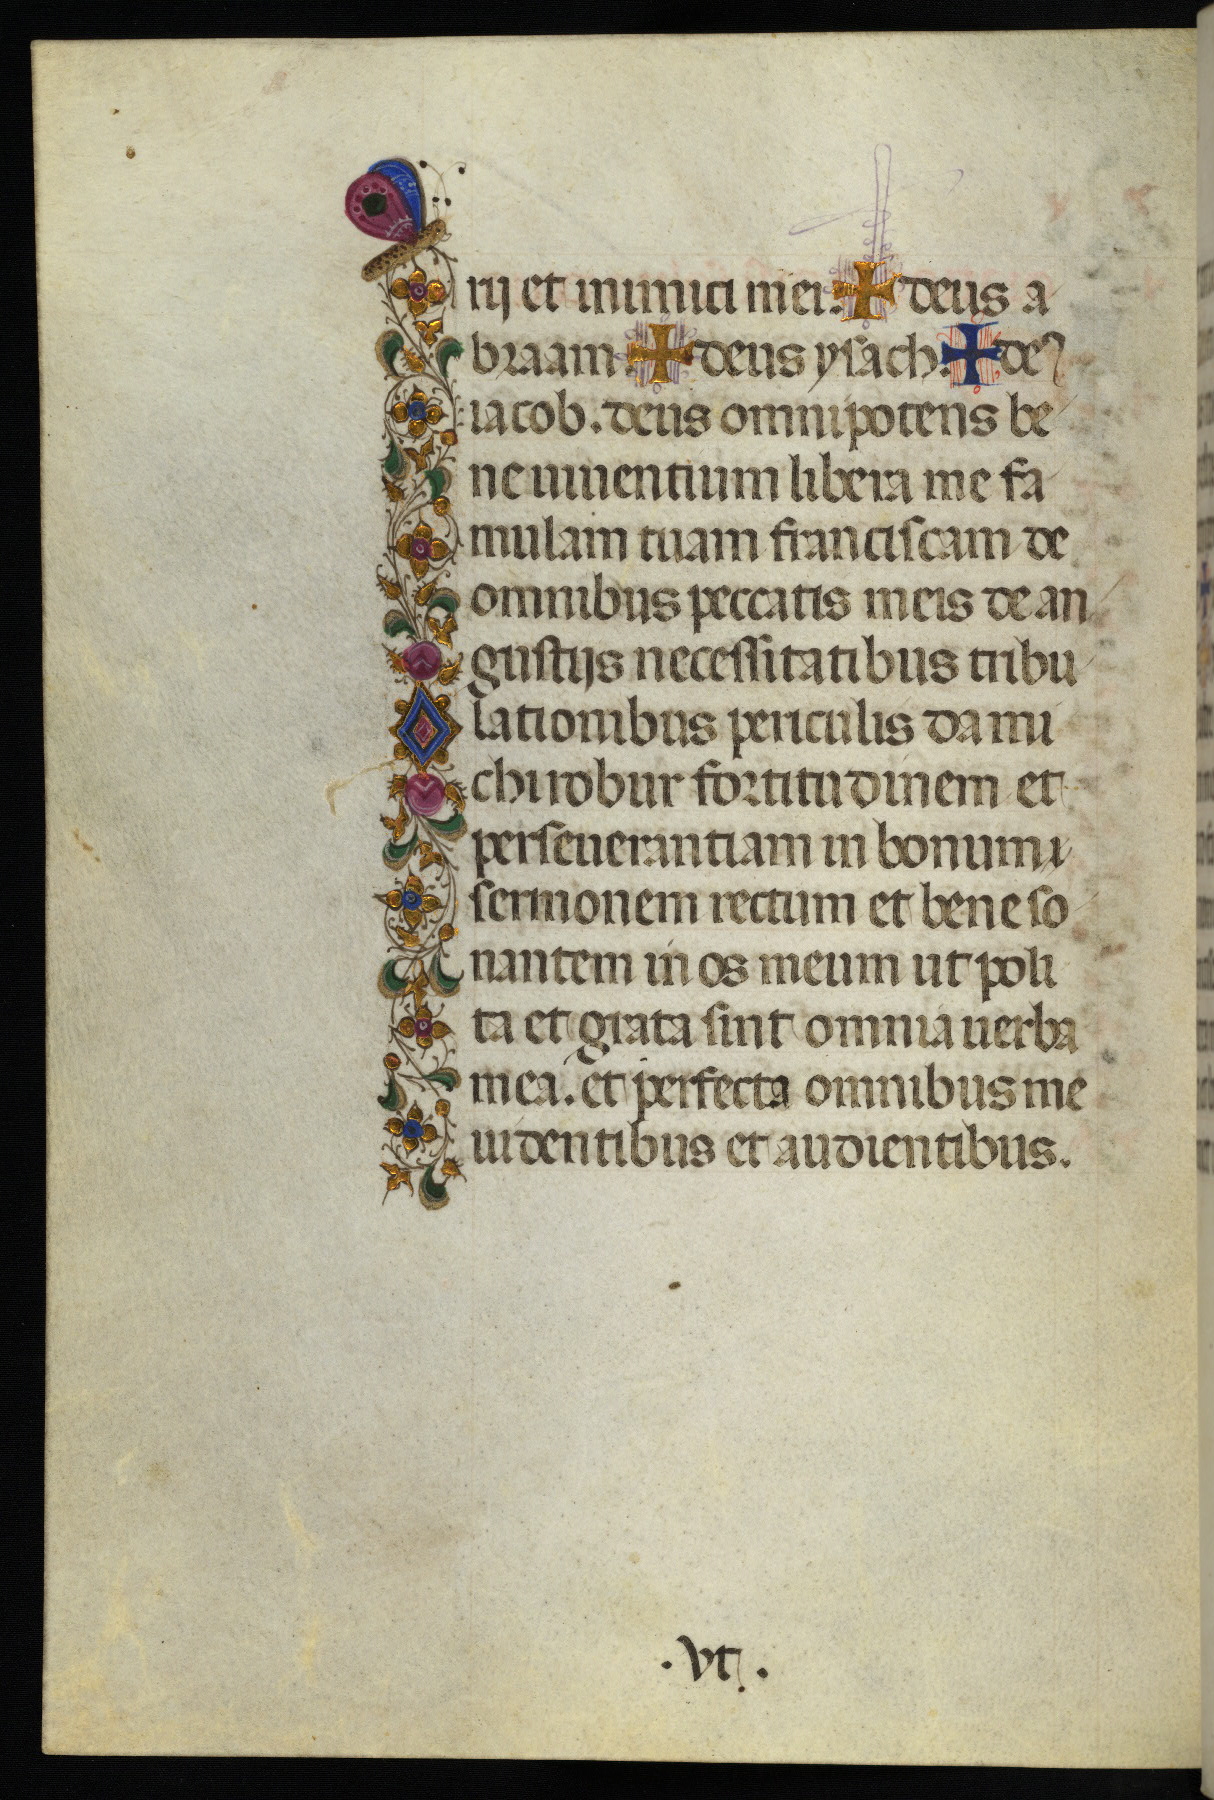 rij et inimici mei. ✠ deus a
braam ✠ deus ysach. ✠ deꝰ
iacob. deus omnipotens be
ne uiuentium libera me fa
mulam tuam franciscam de
omnibus peccatis meis de an
gustijs necessitatibus tribu
lationibus periculis da mi
chi robur fortitudinem et
perseuerantiam in bonum
sermonem rectum et bene so
nantem in os meum ut poli
ta et grata sint omnia uerba
mea. et perfecta omnibus me
uidentibus et audientibus.